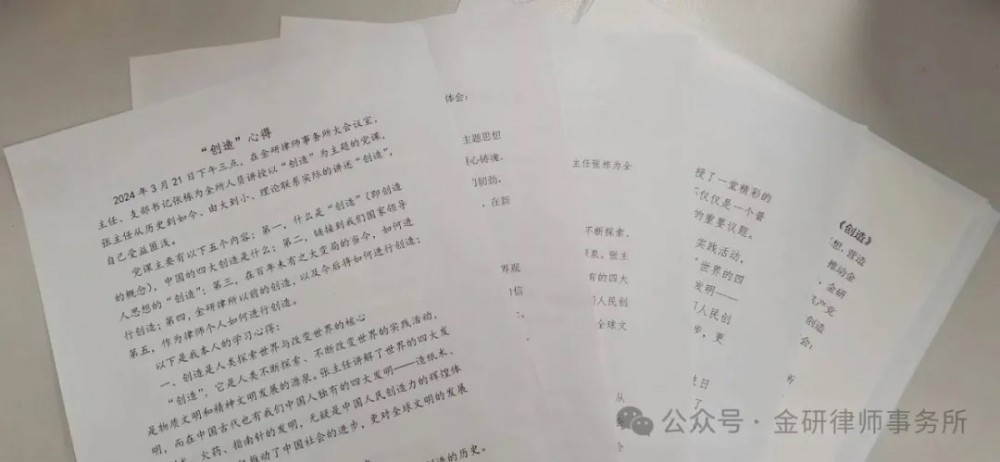 “创造”心得
2024年3月21日下午三点，在金研律师事务所大会议室，
主任、支部书记张栋为全所人员讲授以“创造”为主题的党课，
张主任从历史到如今、由大到小、理论联系实际的讲述“创造”，
自己受益匪浅。
党课主要有以下五个内容；第一，什么是“创造”（即创造
的概念），中国的四大创造是什么；第二，链接到我们国家领导
人思想的“创造”；第三，在百年未有之大变局的当今，如何进
行创造；第四，金研律所以前的创造，以及今后将如何进行创造；
第五，作为律师个人如何进行创造。
以下是我本人的学习心得：
一、创造是人类探索世界与改变世界的核心
“创造”，它是人类不断探索、不断改变世界的实践活动，
是物质文明和精神文明发展的源泉。张主任讲解了世界的四大发
明，而在中国古代也有我们中国人独有的四大发明——造纸术、
火药、指南针的发明，无疑是中国人民创造力的辉煌体
推动了中国社会的进步，更对全球文明的发展
造的历史。
体会：
主题思想
心铸魂
初劲，
，在新
不断探索，
泉。张主
有的四大
人民创
全球文
界观
信
从
个
主任张栋为全
授了一堂精彩的
仅仅是一个普
的重要议题。
实践活动，
世界的四
发明——
人民创
步，更
日
了
《创造》
想，营造
推动金
，金研
产党
创造
会：
公众号·金研律师事务所